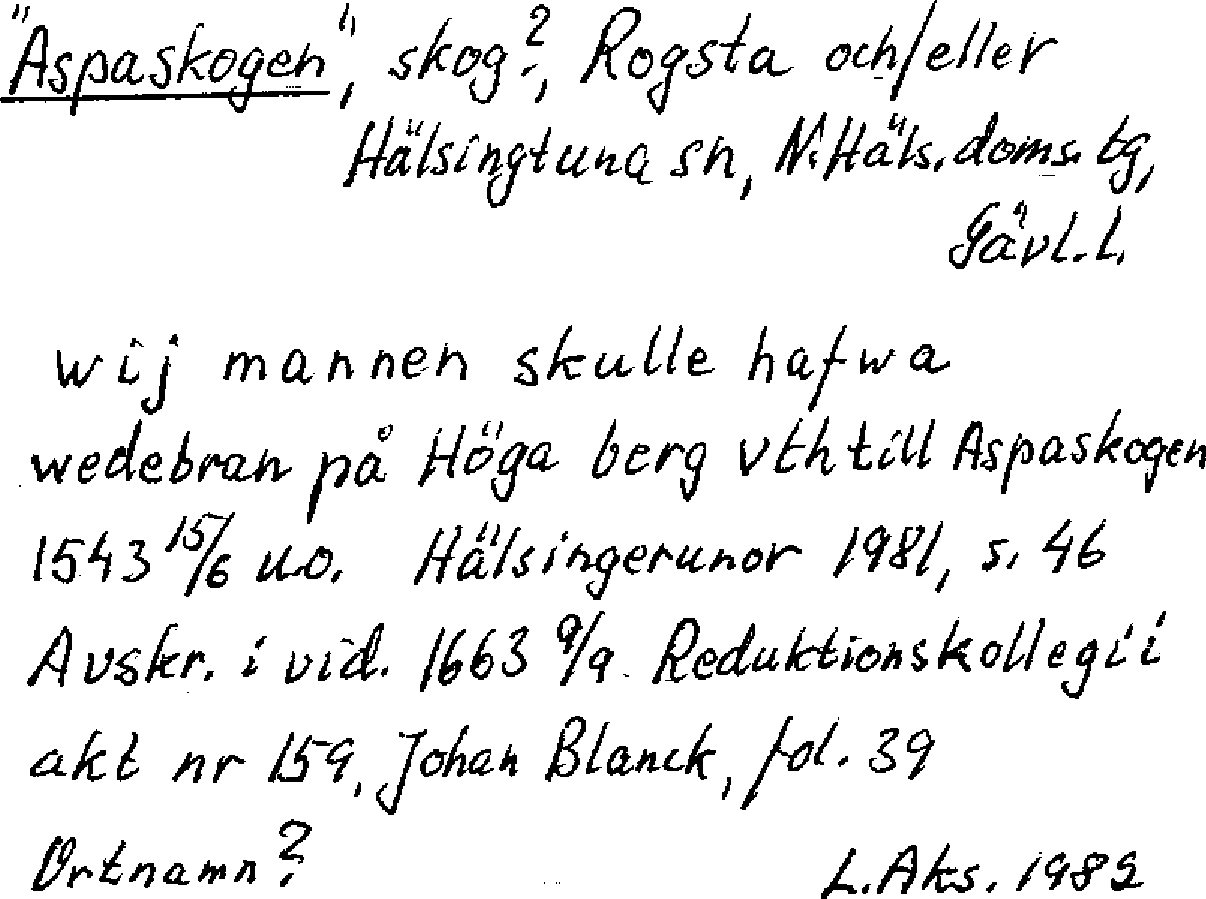 "Aspaskogen", skog?, Rogsta och/eller
Hälsingtuna sn, N. Häls. doms. tg,
Gävl. l.
wij mannen skulle hafwa
wedebran på Höga berg vth till Aspaskogen
1543 15/6 u.o. Hälsingerunor 1981, s. 46
Avskr. i vid. 1663 9/9 Reduktionskollegii
akt nr 159, Johan Blanck, fol. 39
Ortnamn?
L. Aks. 1982